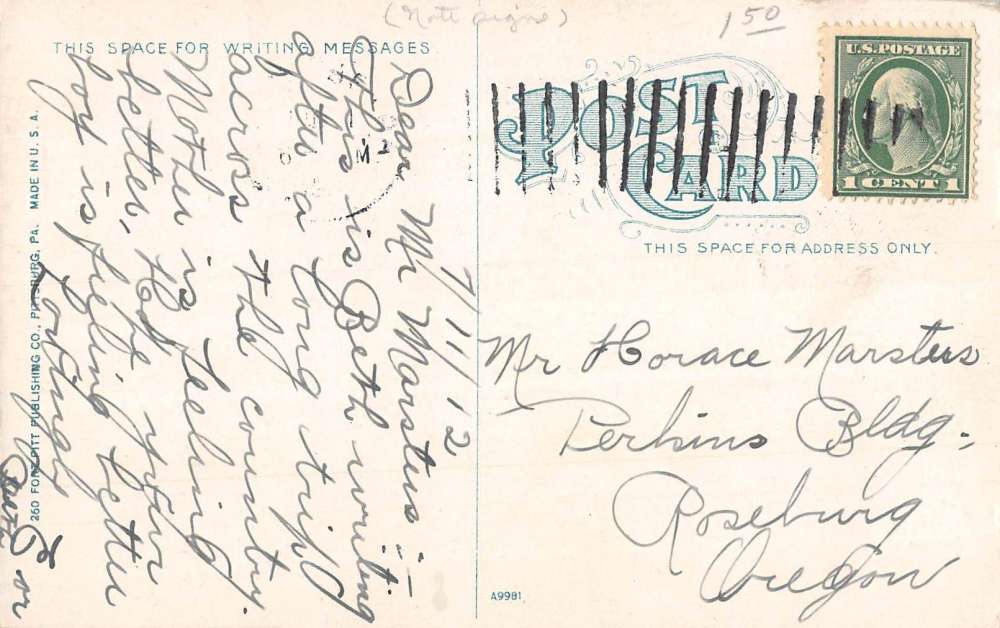 (Note signe)
1 50
THIS SPACE FOR WRITING MESSAGES
7/11/12
Dear Mr Marsters:-
This is Beth writing
after a long trip
across the country.
Mother is feeling
better, Hope your
boy is feeling better
Lovingly
Beth
or
260 FORT PITT PUBLISHING CO., PITTSBURG, PA. MADE IN U.S.A.
U.S. POSTAGE
1 CENT 1
POST CARD
THIS SPACE FOR ADDRESS ONLY.
Mr Horace Marsters
Perkins Bldg.
Roseburg
Oregon
A9981